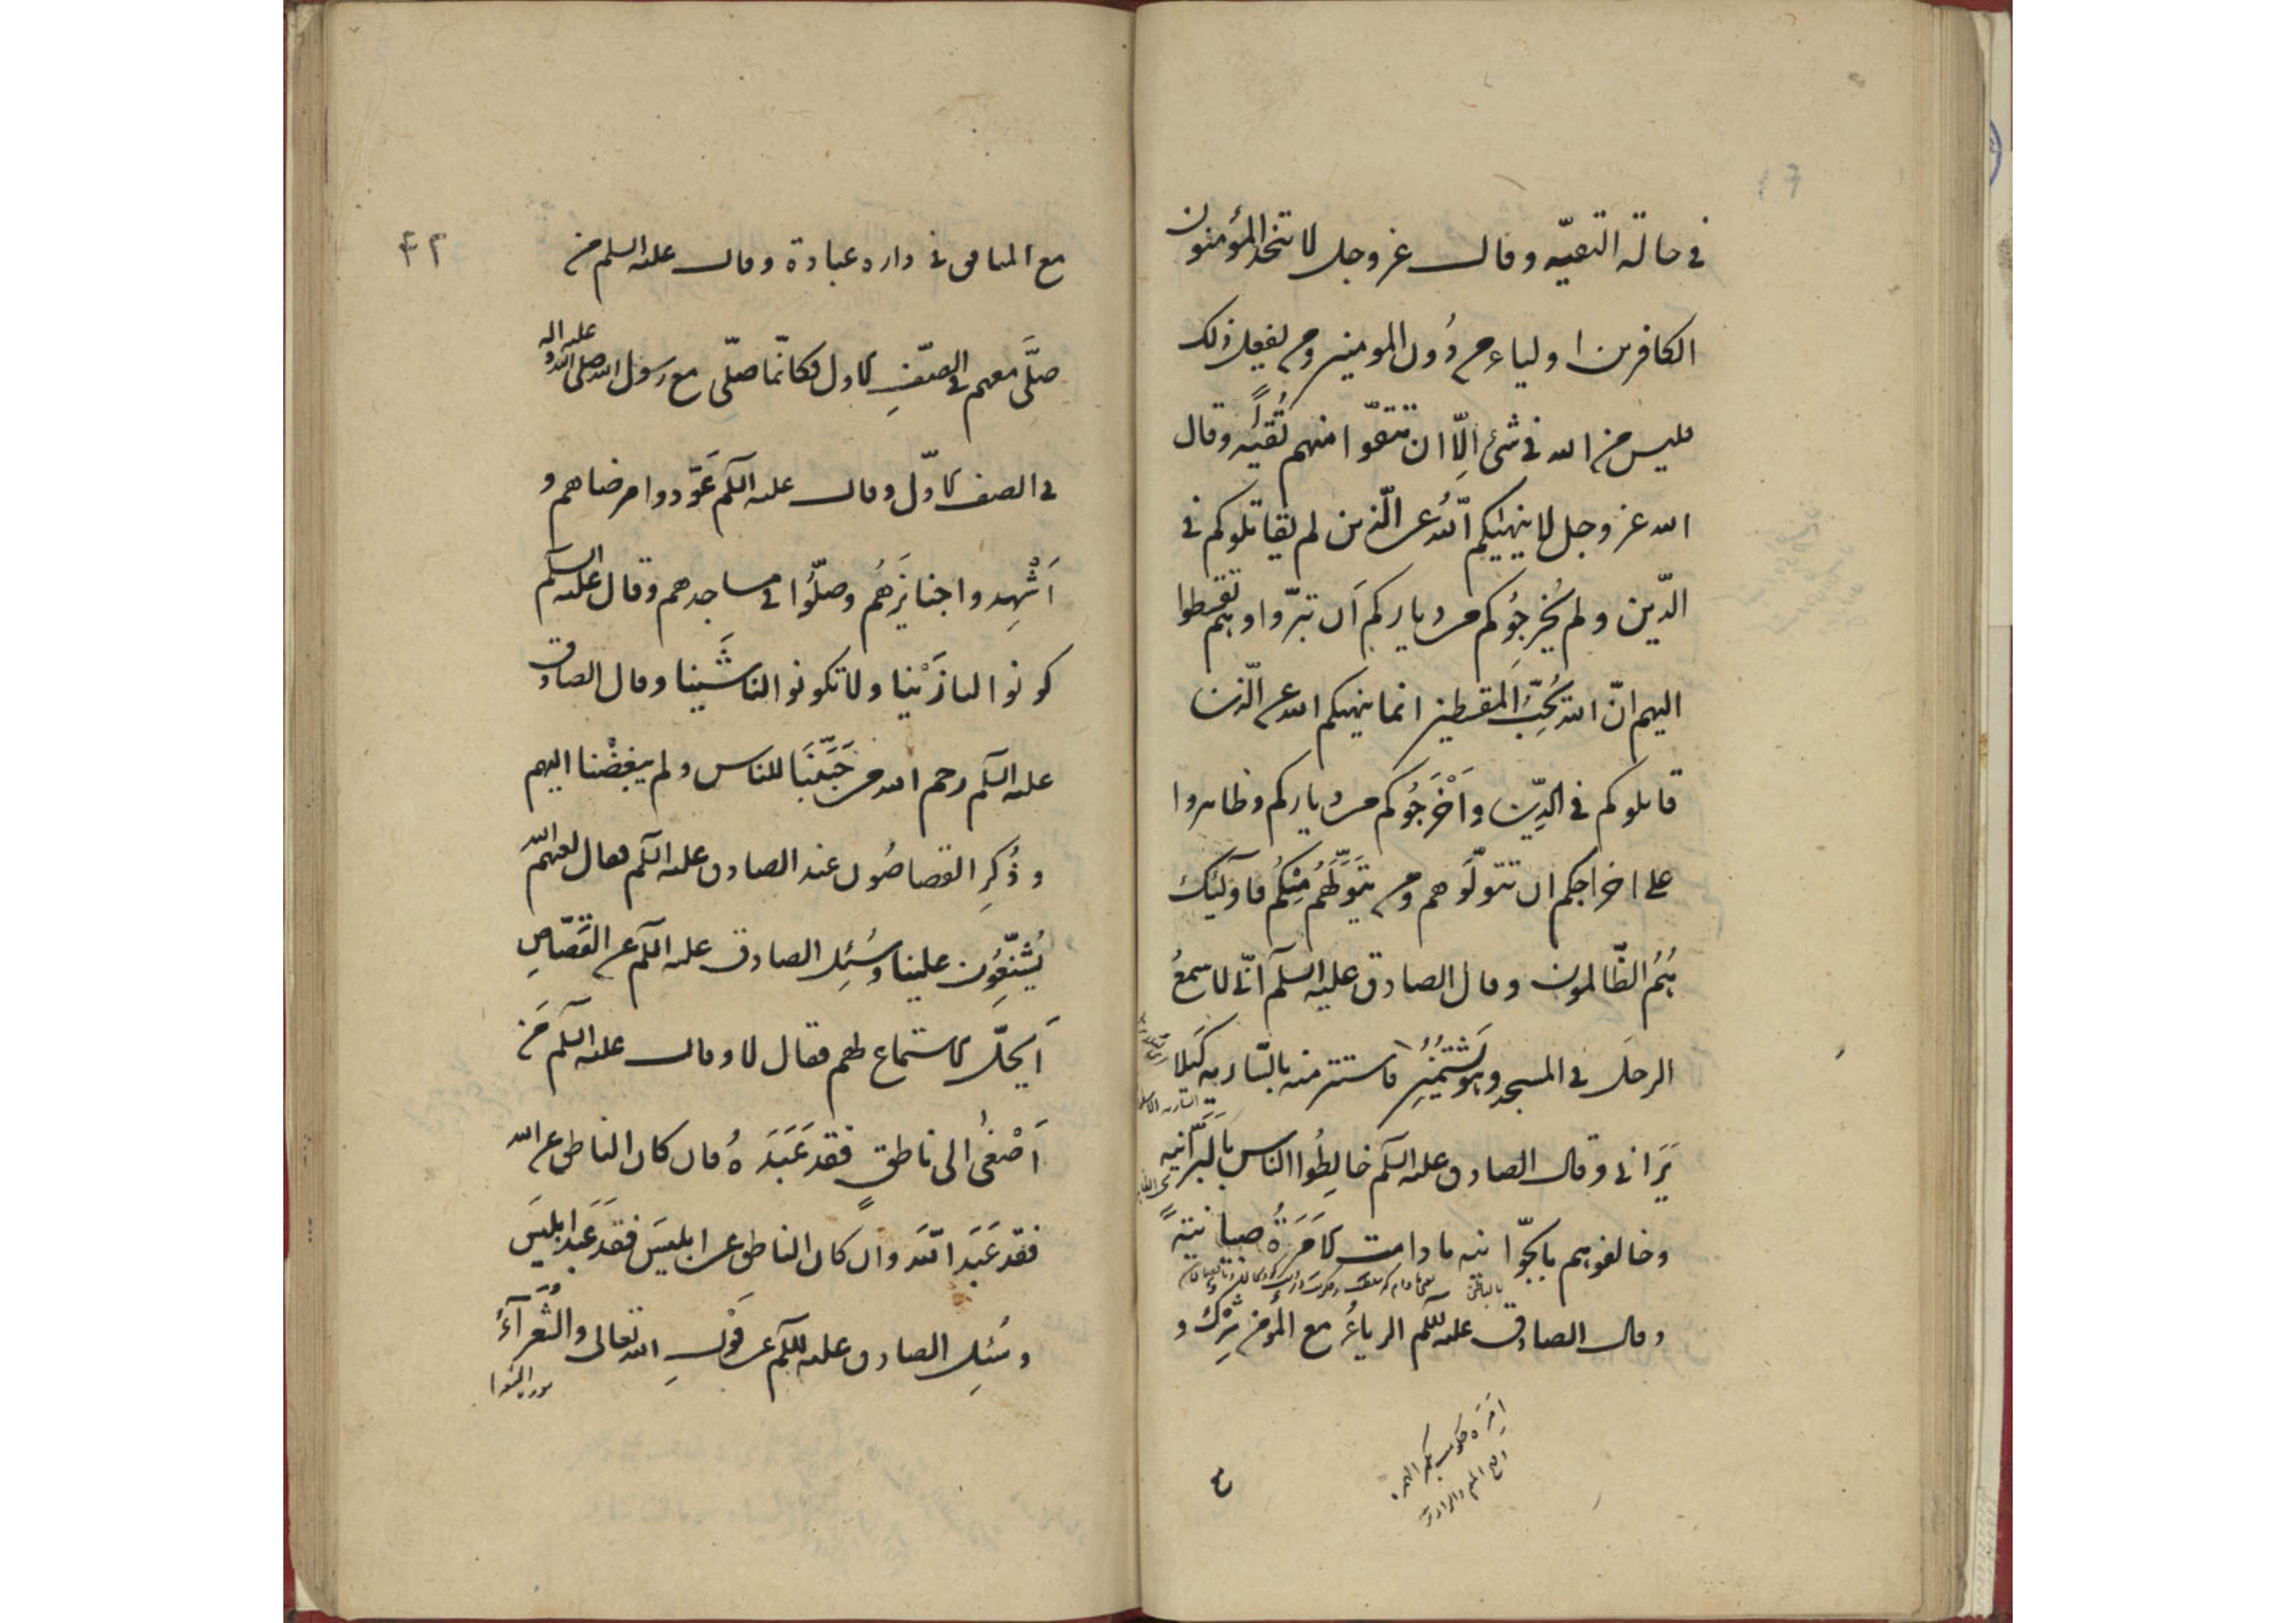 في حالة التقيّه وقال عز وجل لا تتخذ المؤمنون
الكافرين اولياء من دُون المومنين ومن يفعل ذلك
فليس من الله في شئ اِلّا ان تتقوا منهم تُقيةً وقال
الله عز وجل لا ينهيٰكم اللّهُ عن الّذين لم يقاتلوكم في
الدّين ولم يُخرجُوكم من دياركم اَن تبرّوا وهم تقسطوا
اليهم انّ الله يُحِبُّ المقسطين انما ينهيكم الله عن الّذين
قاتلوكم في الدِّين واَخْرَجُوكم من دياركم وظاهروا
على اخراجكم ان تتولّوهم ومن يَتَولَّهُم مِنْكُم فاوليٓك
هُمُ الظّالمون وقال الصادق عليه السلم انّى لاسمعُ
الرجلَ في المسجد وهو يَشْتُمُنِى فاستتر منه بالسّاريه كَيلا
يَرَانى وقال الصادق عليه السلم خالِطُوا الناس بالبَرّانيه
وخالفوهم بالجوّانيه مادامت الاَمَرَةُ صبيانيّةً
وقال الصادق عليه السلم الرياءُ مع المؤمن شِرْكٌ و
ع
٤٢
مع المنافق في داره عبادة وقال عليه السلم من
صلَّى معهم في الصّفِ الاول فكانّما صلّى مع رسول الله صلى الله عليه واله
في الصف الاوّل وقال عليه السلم عَوّدوا مرضاهم و
اَشْهِدوا جنايزَهُم وصلّوُا في مساجدهم وقال عليه السلم
كونوا لنا زَيْنا ولا تكونوا لنا شَينا وقال الصادق
عليه السلم رحم الله من حَبَّبَنَا للناس ولم يبغضْنا اليهم
وذُكِر القصاصُون عند الصادق عليه السلم فقال لعنهم الله
يُشَنِّعُون علينا وسُئِل الصادق عليه السلم عن القَصّاصِ
اَيحلّ الاستماع لهم فقال لا وقال عليه السلم مَن
اَصْغىٰ الى ناطقٍ فقد عَبَدَهُ فان كان الناطق عن الله
فقد عَبَد اللّهَ وان كان الناطق عن ابليسَ فقد عَبَد ابليسَ
وسُئِل الصادق عليه السلم عن قَوْلِ الله تعالى والشُّعَرآءُ